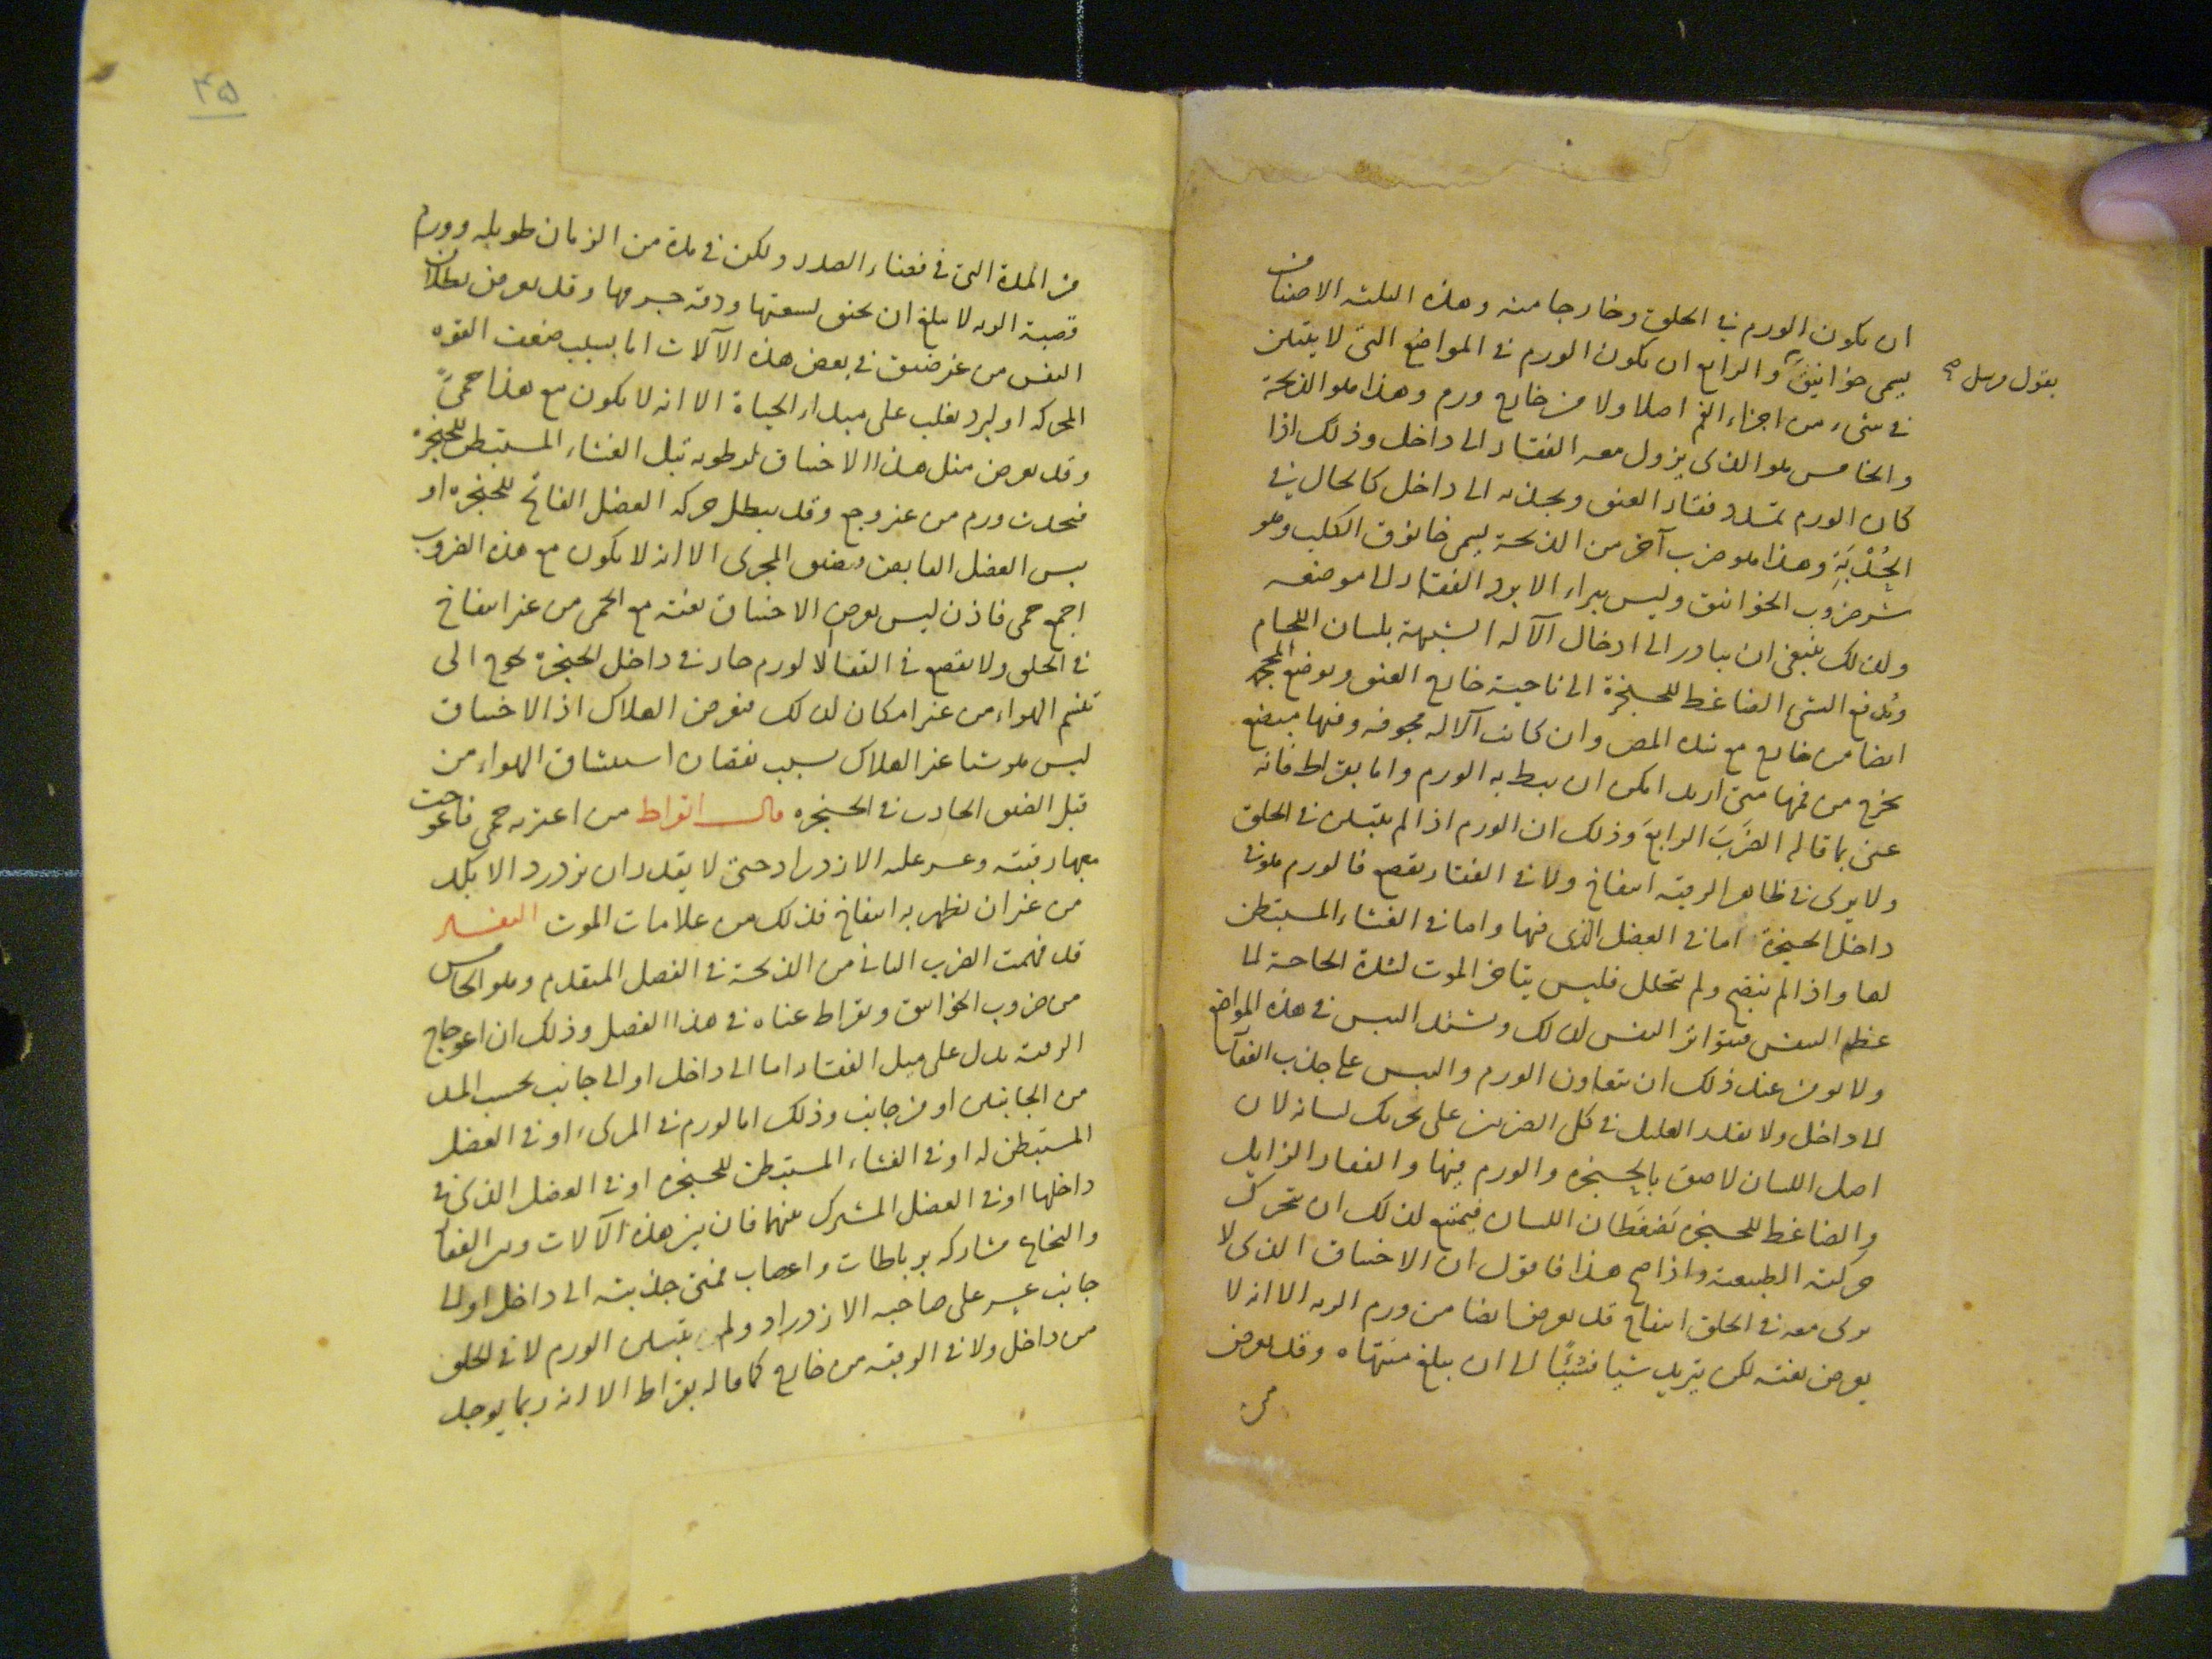 ان يكون الورم في الحلق وخارجا منه وهذه الثلثه الاصناف
يسمى خوانيق والرابع ان يكون الورم في المواضع التي لا يتبين
بقول مرسل صح
في شيء من اجزاء الفم اصلا ولا من خارج ورم وهذا هو الذبحة
والخامس هو الذي يزول معه الفقار الى داخل وذلك اذا
كان الورم تمدد فقار العنق ويجذبه الى داخل كالحال في
الحُدْبَة وهذا هو ضرب آخر من الذبحة يسمى خانوق الكلب وهو
شر ضروب الخوانيق وليس يبراء الا برد الفقار الى موضعه
ولذلك ينبغي ان يبادر الى ادخال الآله الشبيهة بلسان اللجام
ويدفع الشي الضاغط للحنجرة الى ناحية خارج العنق ويوضع المحجمه
ايضا من خارج مع شده المص وان كانت الآله مجوفه وفيها مبضع
يخرج من فمها متى اريد امكن ان يبط به الورم واما بقراط فانه
عنى بما قاله الضرب الرابع وذلك ان الورم اذا لم يتبين في الحلق
ولا يرى في ظاهر الرقبه انتفاخ ولا في الفقار تقصع فالورم هو في
داخل الحنجرة اما في العضل الذي فيها واما في الغشاء المستبطن
لها واذا لم ينضج ولم يتحلل فليس يتاخر الموت لشدة الحاجة الى
عظم النفس فيتواتر النفس لذلك ويشتد اليبس في هذه المواضع
ولا يومن عند ذلك ان يتعاون الورم واليبس على جذب الفقار
الى داخل ولا يقدر العليل في كل الضربين على تحريك لسانه لان
اصل اللسان لاصق بالحنجره والورم فيها والفقار الزايل
والضاغط للحنجره يضغطان اللسان فيمتنع لذلك ان يتحرك
حركته الطبيعية واذا صح هذا فاقول ان الاختناق الذي لا
يرى معه في الحلق انتفاخ قد يعرض ايضا من ورم الريه الا انه لا
يعرض بغته لكن يتزيد شيا فشيئًا الى ان يبلغ منتهاه وقد يعرض
من
۴۵
من المدة التي في فضاء الصدر ولكن في مدة من الزمان طويله وورم
قصبة الريه لا يبلغ ان يخنق لسعتها ودقه جرمها وقد يعرض بطلان
النفس من غير ضيق في بعض هذه الآلات اما بسبب ضعف القوه
المحركه او لبرد يغلب على مبدا الحياة الا انه لا يكون مع هذا حمىً
وقد يعرض مثل هذا الاختناق لرطوبه تبل الغشاء المستبطن للحنجرة
فيحدث ورم من غير وجع وقد يبطل حركه العضل الفاتح للحنجره او
يبس العضل القابض فيضيق المجرى الا انه لا يكون مع هذه الضروب
اجمع حمى فاذن ليس يعرض الاختناق بغته مع الحمى من غير انتفاخ
في الحلق ولا تقصع في القفا الا لورم حار في داخل الحنجرة يحوج الى
تنسم الهواء من غير امكان لذلك فيعرض الهلاك اذ الاختناق
ليس هو شيا غير الهلاك بسبب نقصان استنشاق الهواء من
قبل الضيق الحادث في الحنجره قال ابقراط من اعترته حمى فاعوجت
معها رقبته وعسر عليه الازدراد حتى لا يقدر ان يزدرد الا بكد
من غير ان يظهر به انتفاخ فذلك من علامات الموت التفسير
قد فهمت الضرب الثاني من الذبحة في الفصل المتقدم وهو الخامس
من ضروب الخوانيق وبقراط عناه في هذا الفصل وذلك ان اعوجاج
الرقبه يدل على ميل الفقار اما الى داخل او الى جانب بحسب المد
من الجانبين او من جانب وذلك اما لورم في المرىء او في العضل
المستبطن له او في الغشاء المستبطن للحنجره او في العضل الذي في
داخلها او في العضل المشترك بينهما فان بين هذه الآلات وبين الفقار
والنخاع مشاركه برباطات واعصاب فمتى جذبته الى داخل او الى
جانب عسر على صاحبه الازدراد ولم يتبين الورم لا في الحلق
من داخل ولا في الرقبه من خارج كما قاله بقراط الا انه ربما يوجد